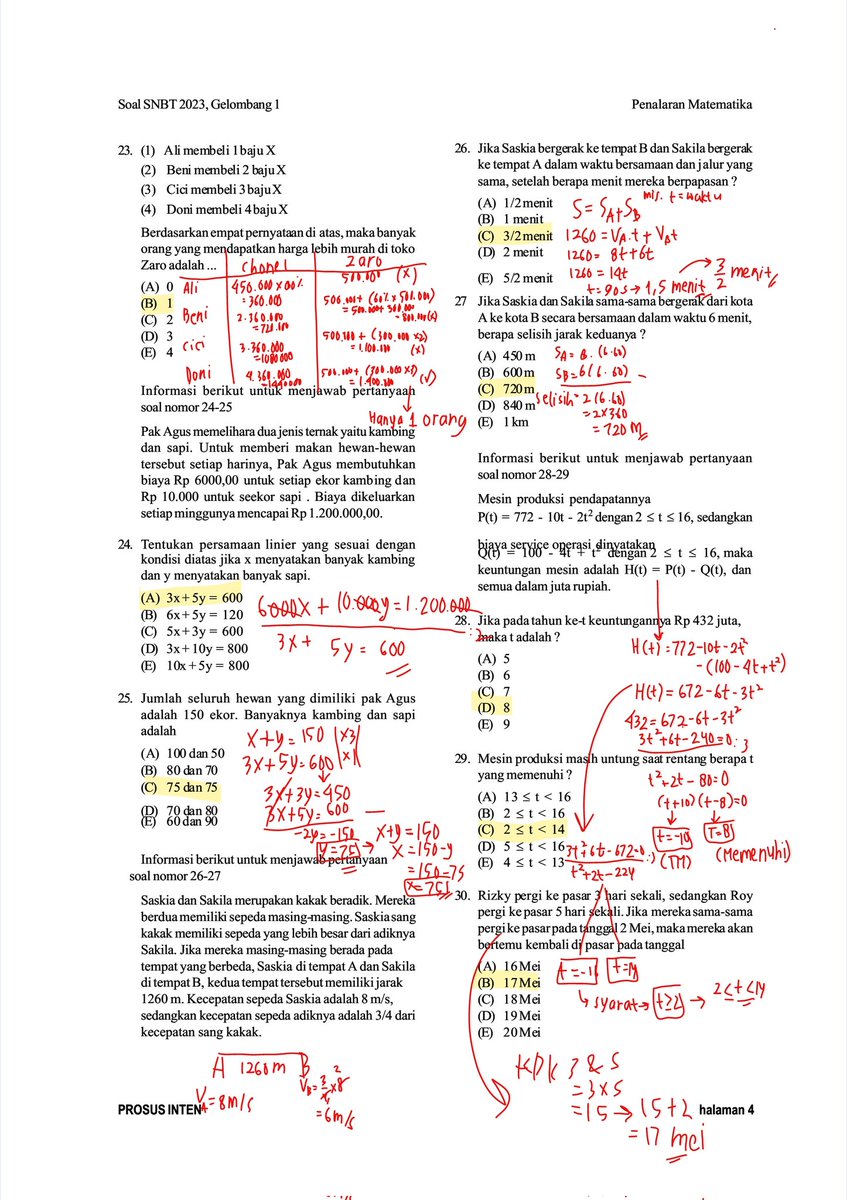 Soal SNBT 2023, Gelombang 1
Penalaran Matematika
23. (1) Ali membeli 1 baju X
(2) Beni membeli 2 baju X
(3) Cici membeli 3 baju X
(4) Doni membeli 4 baju X
Berdasarkan empat pernyataan di atas, maka banyak
orang yang mendapatkan harga lebih murah di toko
Zaro adalah ...
(A) 0
(B) 1
(C) 2
(D) 3
(E) 4
Chanel
Zaro
Ali
450.000 x 80%
= 360.000
500.000 (x)
Beni
2.360.000
= 720.000
500.000 + (60% x 500.000)
= 500.000 + 300.000
= 800.000 (x)
Cici
3.360.000
= 1080000
500.000 + (300.000 x 2)
= 1.100.000
(x)
Doni
4.360.000
= 1440000
500.000 + (300.000 x 3)
= 1.400.000 (√)
Hanya 1 orang
Informasi berikut untuk menjawab pertanyaan
soal nomor 24-25
Pak Agus memelihara dua jenis ternak yaitu kambing
dan sapi. Untuk memberi makan hewan-hewan
tersebut setiap harinya, Pak Agus membutuhkan
biaya Rp 6000,00 untuk setiap ekor kambing dan
Rp 10.000 untuk seekor sapi . Biaya dikeluarkan
setiap minggunya mencapai Rp 1.200.000,00.
24. Tentukan persamaan linier yang sesuai dengan
kondisi diatas jika x menyatakan banyak kambing
dan y menyatakan banyak sapi.
(A) 3x + 5y = 600
(B) 6x + 5y = 120
(C) 5x + 3y = 600
(D) 3x + 10y = 800
(E) 10x + 5y = 800
6000x + 10.000y = 1.200.000
3x + 5y = 600
25. Jumlah seluruh hewan yang dimiliki pak Agus
adalah 150 ekor. Banyaknya kambing dan sapi
adalah
(A) 100 dan 50
(B) 80 dan 70
(C) 75 dan 75
(D) 70 dan 80
(E) 60 dan 90
x + y = 150 |x3|
3x + 5y = 600 |x1|
3x + 3y = 450
3x + 5y = 600
-2y = -150
y = 75
x + y = 150
x = 150 - y
= 150 - 75
x = 75
Informasi berikut untuk menjawab pertanyaan
soal nomor 26-27
Saskia dan Sakila merupakan kakak beradik. Mereka
berdua memiliki sepeda masing-masing. Saskia sang
kakak memiliki sepeda yang lebih besar dari adiknya
Sakila. Jika mereka masing-masing berada pada
tempat yang berbeda, Saskia di tempat A dan Sakila
di tempat B, kedua tempat tersebut memiliki jarak
1260 m. Kecepatan sepeda Saskia adalah 8 m/s,
sedangkan kecepatan sepeda adiknya adalah 3/4 dari
kecepatan sang kakak.
A 1260 m B
VA = 8 m/s
VB = 3/4 x 8 2
= 6 m/s
26. Jika Saskia bergerak ke tempat B dan Sakila bergerak
ke tempat A dalam waktu bersamaan dan jalur yang
sama, setelah berapa menit mereka berpapasan ?
(A) 1/2 menit
(B) 1 menit
(C) 3/2 menit
(D) 2 menit
(E) 5/2 menit
mis. t = waktu
S = SA + SB
1260 = VA.t + VB t
1260 = 8t + 6t
1260 = 14t
t = 90s → 1,5 menit
3/2 menit
27 Jika Saskia dan Sakila sama-sama bergerak dari kota
A ke kota B secara bersamaan dalam waktu 6 menit,
berapa selisih jarak keduanya ?
(A) 450 m
(B) 600 m
(C) 720 m
(D) 840 m
(E) 1 km
SA = 8. (6.60)
SB = 6 (6.60)
selisih = 2 (6.60)
= 2 x 360
= 720 m
Informasi berikut untuk menjawab pertanyaan
soal nomor 28-29
Mesin produksi pendapatannya
P(t) = 772 - 10t - 2t² dengan 2 ≤ t ≤ 16, sedangkan
biaya service operasi dinyatakan
Q(t) = 100 - 4t + t² dengan 2 ≤ t ≤ 16, maka
keuntungan mesin adalah H(t) = P(t) - Q(t), dan
semua dalam juta rupiah.
28. Jika pada tahun ke-t keuntungannya Rp 432 juta,
maka t adalah ?
(A) 5
(B) 6
(C) 7
(D) 8
(E) 9
H(t) = 772 - 10t - 2t²
- (100 - 4t + t²)
H(t) = 672 - 6t - 3t²
432 = 672 - 6t - 3t²
3t² + 6t - 240 = 0 : 3
t² + 2t - 80 = 0
(t + 10) (t - 8) = 0
t = -10
(TM)
t = 8
(Memenuhi)
29. Mesin produksi masih untung saat rentang berapa t
yang memenuhi ?
(A) 13 ≤ t < 16
(B) 2 ≤ t < 16
(C) 2 ≤ t < 14
(D) 5 ≤ t < 16
(E) 4 ≤ t < 13
3t² + 6t - 672 = 0 : 3
t² + 2t - 224
t = -16
t = 14
syarat → t ≥ 2 → 2 ≤ t < 14
30. Rizky pergi ke pasar 3 hari sekali, sedangkan Roy
pergi ke pasar 5 hari sekali. Jika mereka sama-sama
pergi ke pasar pada tanggal 2 Mei, maka mereka akan
bertemu kembali di pasar pada tanggal
(A) 16 Mei
(B) 17 Mei
(C) 18 Mei
(D) 19 Mei
(E) 20 Mei
KPK 3 & 5
= 3 x 5
= 15 → 15 + 2
= 17 mei
PROSUS INTEN
halaman 4